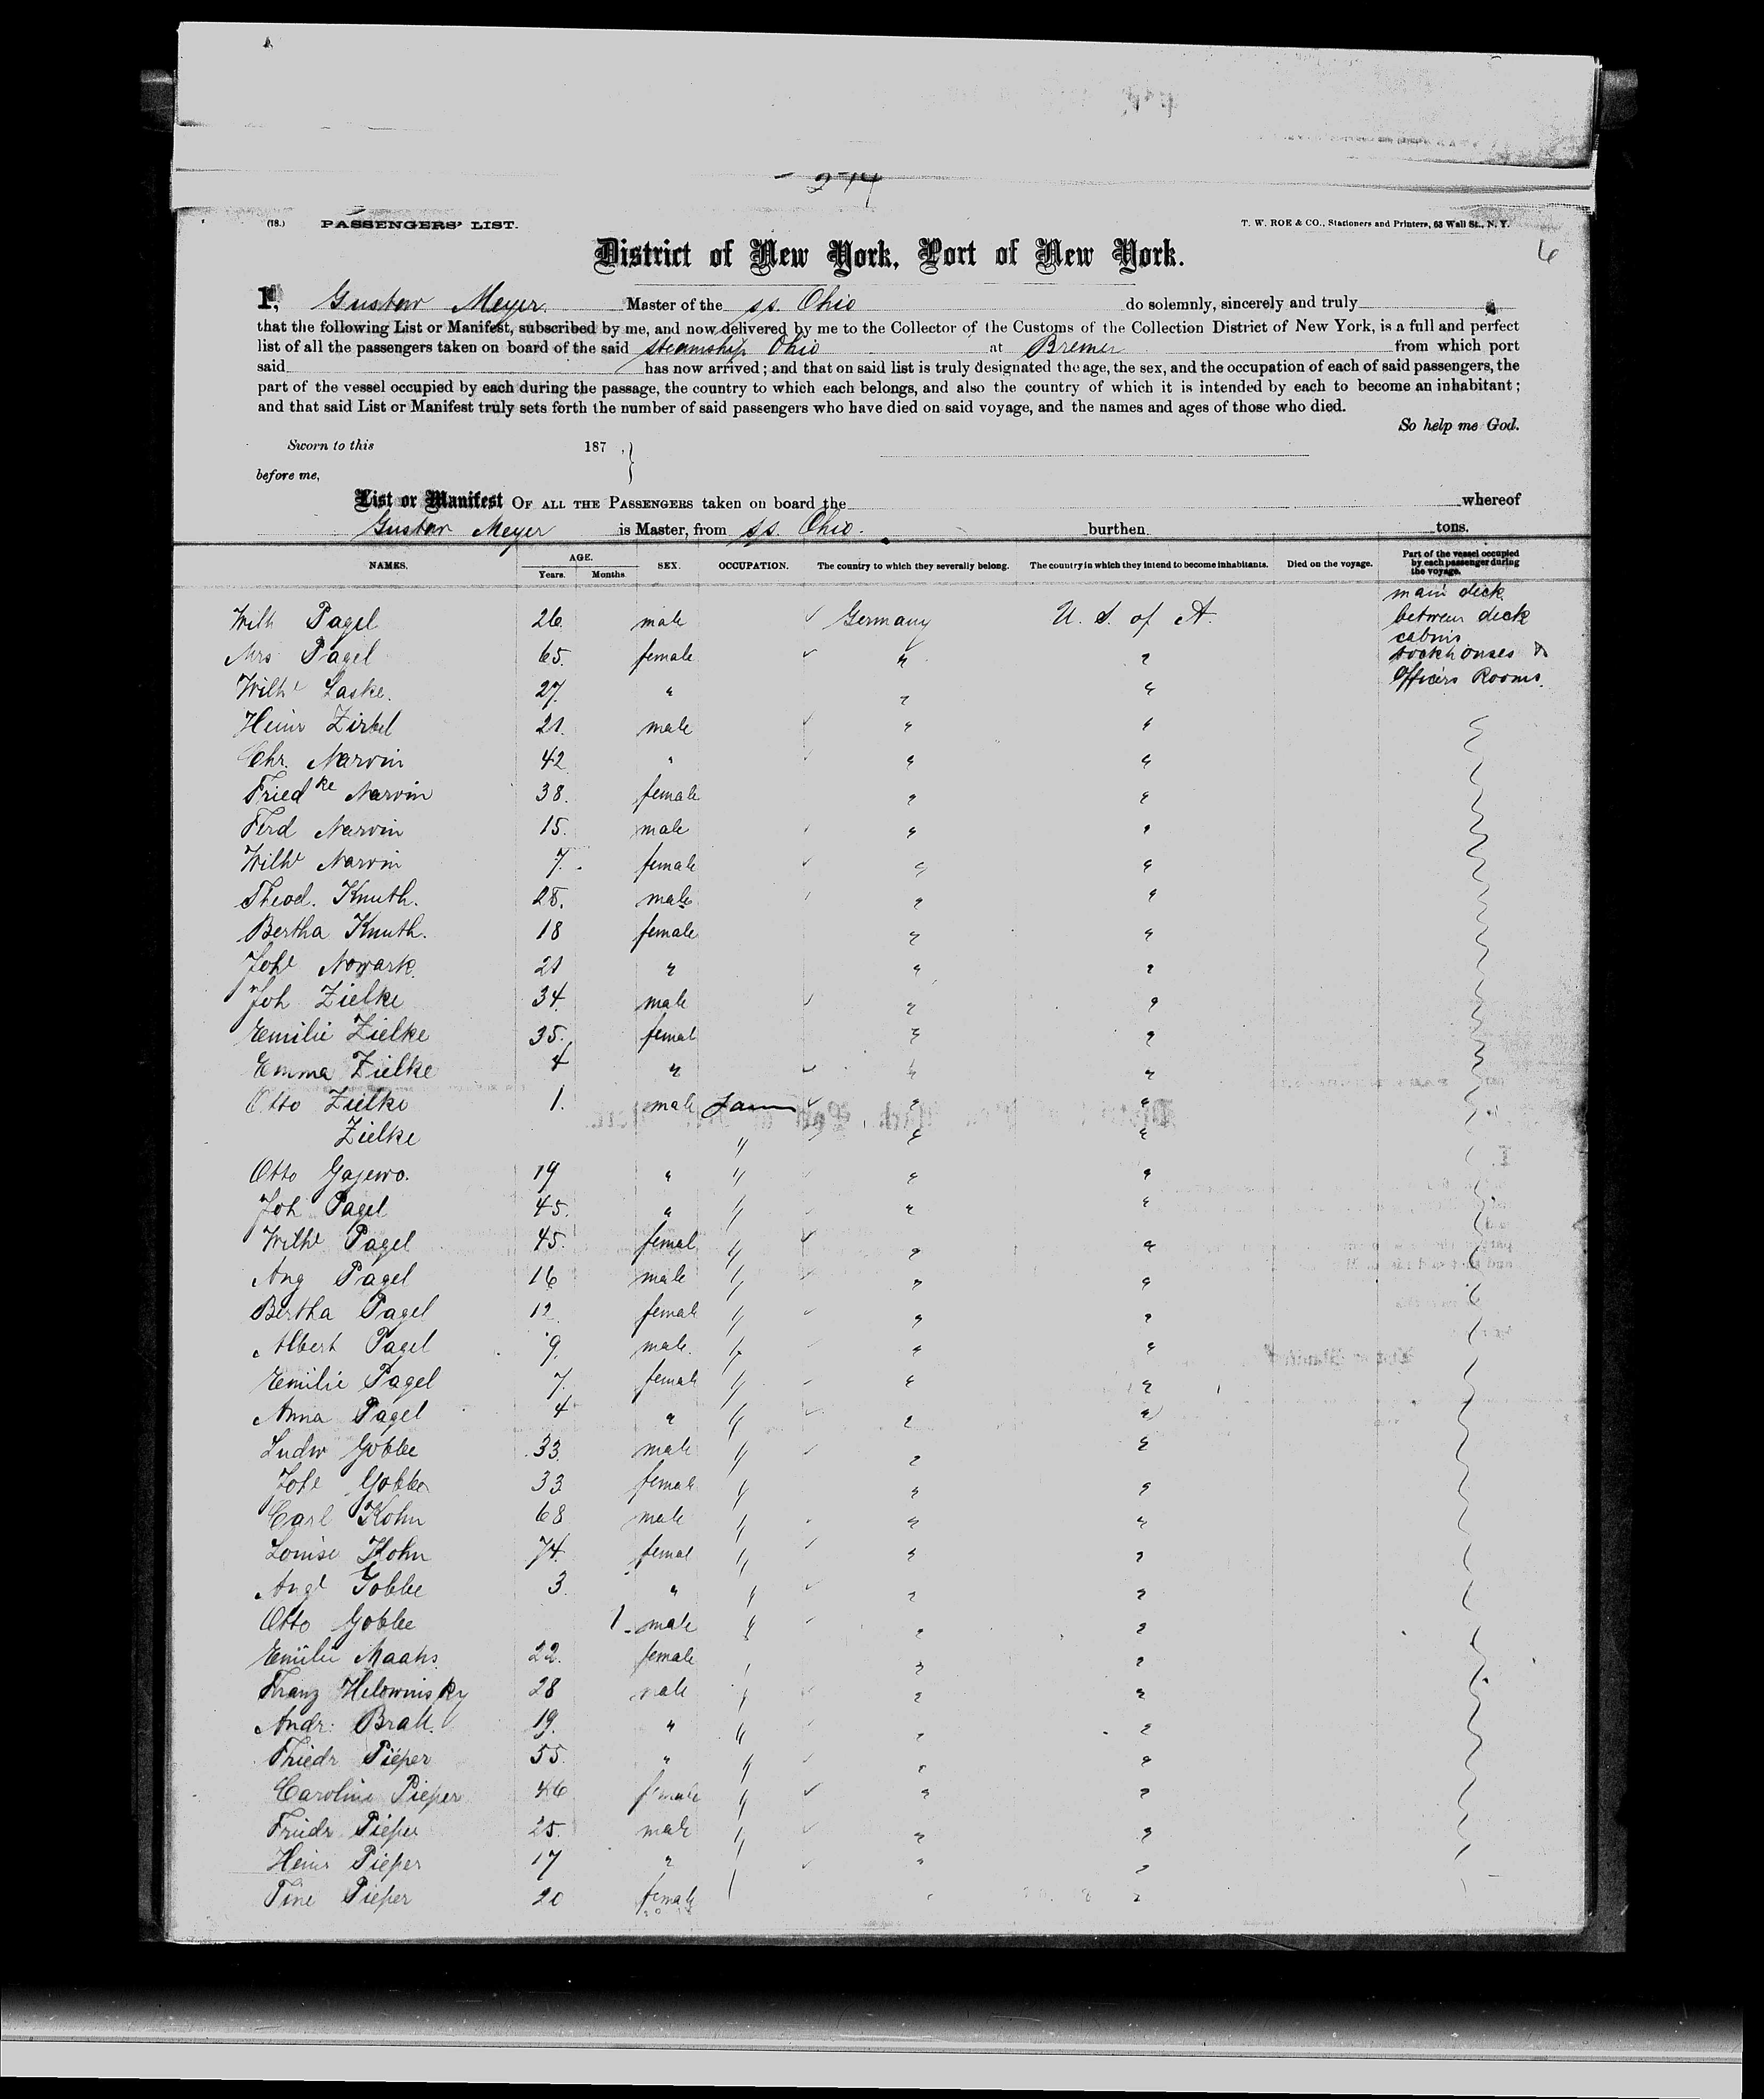 274
(18.) PASSENGERS' LIST. T. W. ROE & CO., Stationers and Printers, 63 Wall St., N. Y.
6
District of New York, Port of New York.
I, Gustav Meyer Master of the ss. Ohio do solemnly, sincerely and truly
that the following List or Manifest, subscribed by me, and now delivered by me to the Collector of the Customs of the Collection District of New York, is a full and perfect
list of all the passengers taken on board of the said steamship Ohio at Bremen from which port
said has now arrived; and that on said list is truly designated the age, the sex, and the occupation of each of said passengers, the
part of the vessel occupied by each during the passage, the country to which each belongs, and also the country of which it is intended by each to become an inhabitant;
and that said List or Manifest truly sets forth the number of said passengers who have died on said voyage, and the names and ages of those who died.
So help me God.
Sworn to this 187
before me,
List or Manifest OF ALL THE PASSENGERS taken on board the whereof
Gustav Meyer is Master, from ss. Ohio. burthen tons.
NAMES. AGE. Years. Months. SEX. OCCUPATION. The country to which they severally belong. The country in which they intend to become inhabitants. Died on the voyage. Part of the vessel occupied by each passenger during the voyage.
main deck
Wilh Pagel 26 male Germany U. S. of A. between deck
cabins
Mrs Pagel 65. female " "
Officers Rooms.
Wilhe Laske. 27. " " "
Heinr Zirkel 21. male " "
Chr. Narvin 42 " " "
Friedke Narvin 38. female " "
Ferd Narvin 15. male " "
Wilhe Narvin 7. female " "
Theod. Knuth. 28. male " "
Bertha Knuth. 18 female " "
Johe Nowark. 21 " " "
Joh Zielke 34. male " "
Emilie Zielke 35. femal " "
Emma Zielke 4 " " "
Otto Zielke 1. male " "
Zielke " " "
Otto Gajewo. 19 " " " "
Joh Pagel 45. " " " "
Wilhe Pagel 45. femal " " "
Aug Pagel 16 male " " "
Bertha Pagel 12 female " " "
Albert Pagel 9. male. " " "
Emilie Pagel 7. female " " "
Anna Pagel 4 " " " "
Ludw Gobbe 33. male " " "
Johe Gobbe 33 female " " "
Carl Kohn 68 male " " "
Louise Kohn 74. femal " " "
Auge Gobbe 3. " " " "
Otto Gobbe 1. male " " "
Emilie Maahs 22. female " " "
Franz 28 male " " "
Andr. 19. " " " "
Friedr Pieper 55. " " " "
Caroline Pieper 46 female " " "
Friedr Pieper 25. male " " "
Heinr Pieper 17 " " "
Tine Pieper 20 female " "